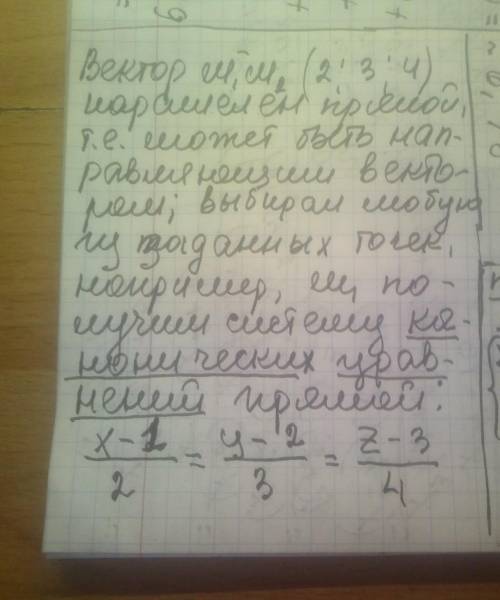 Вектор М₁М₂ (2; 3; 4)
параллелен прямой,
т.е. может быть нап-
равляющим векто-
ром; выбирая любую
из заданных точек,
например, М₁, по-
лучим систему ка-
нонических урав-
нений прямой:
x-1/2 = y-2/3 = z-3/4